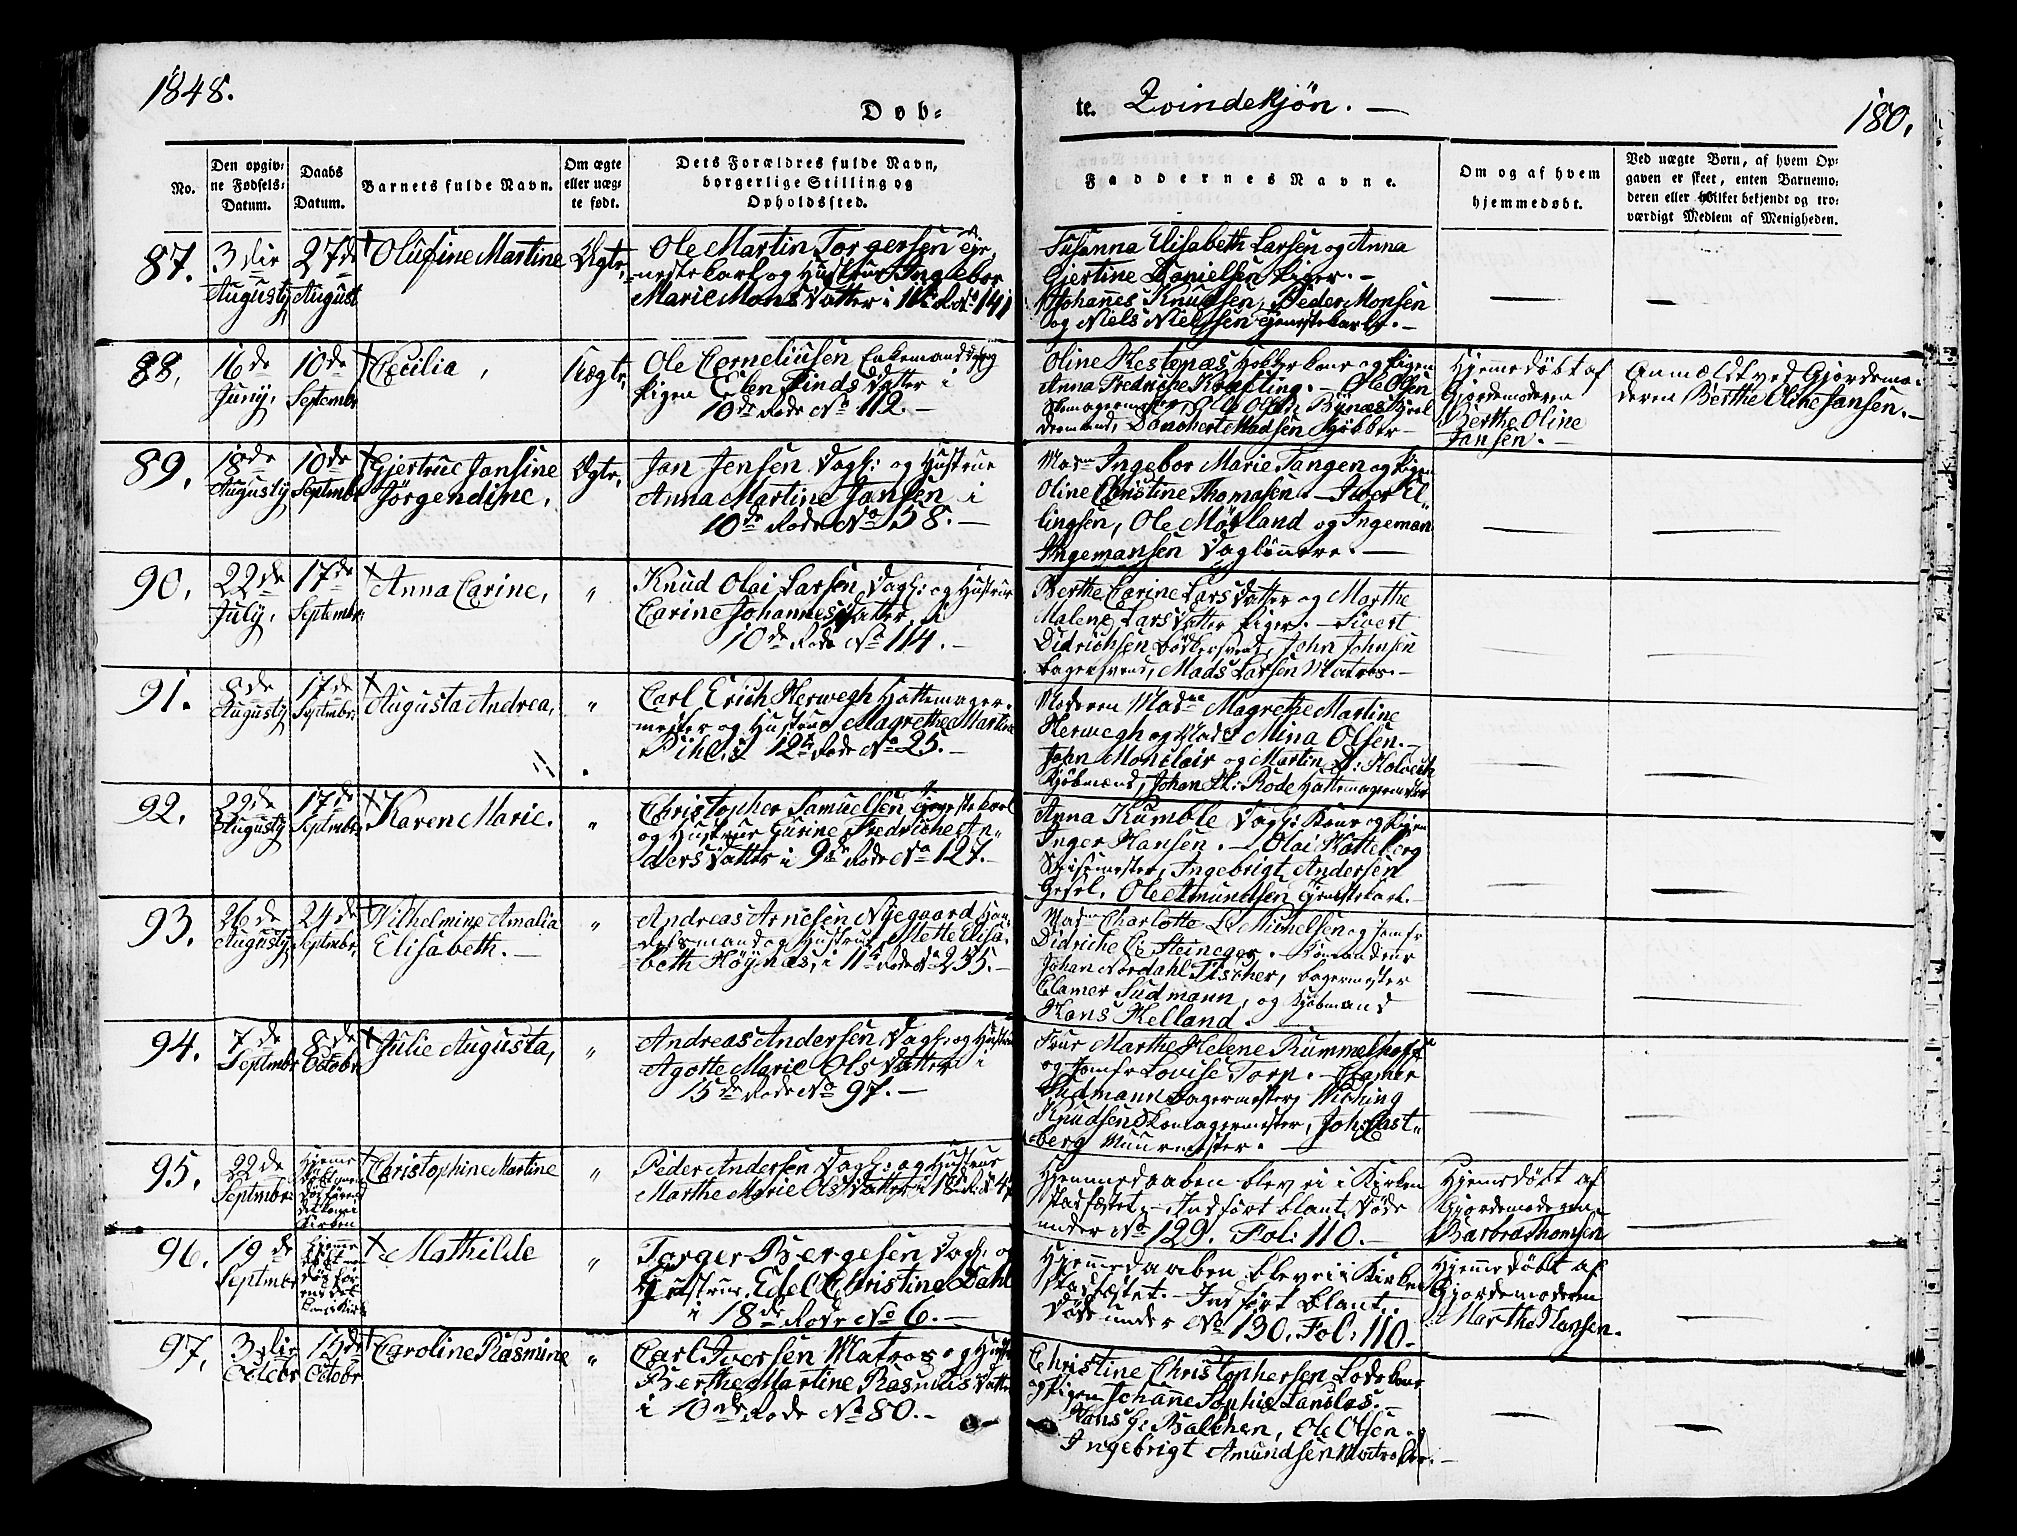 1848.
Døb-
te. Qvindekjøn. —
180.
No.
Den opgiv-
ne Fødsels-
Datum.
Daabs
Datum.
Barnets fulde Navn.
Om ægte
eller uæg-
te født.
Dets Forældres fulde Navn,
borgerlige Stilling og
Opholdssted.
Faddernes Navne.
Om og af hvem
hjemmedøbt.
Ved uægte Børn, af hvem Op-
gaven er skeet, enten Barnemo-
deren eller hvilket bekjendt og tro-
værdigt Medlem af Menigheden.
87.
3die
Augusty
27de
August
Olufine Martine
Ægte,
Ole Martin Torgersen Tje-
nestekarl og Hustrue Ingebor
Marie Mons Datter i 11te Rode 141
Susanna Elisabeth Larsen og Anna
Gjertine Danielsen Piger. —
Johanes Knudsen, Peder Monsen
og Niels Nielssen Tjenestekarle. —
88.
16de
Juny,
10de
Septembr
Cecilia,
Uægte,
Ole Corneliusen Enkemand og
Pigen Elen Finds Datter i
10de Rode No 112. —
Oline Kestenæs Kone og Pigen
Anna Fredriche — Ole Olsen
Danchert Madsen
Hjemedøbt af
Gjordemoderen
Berthe Oline
Jansen. —
Anmældt ved Gjordemo-
deren Berthe Oline Jansen. —
89.
18de
Augusty
10de
Septembr
Gjertrue Jansine
Jørgendine,
Ægte,
Jan Jensen Dagl: og Hustrue
Anna Martine Jansen i
10de Rode No 58. —
Madme Ingebor Marie Tangen og Pigen
Oline Christine Thomasen. — Iver El-
lingsen, Ole Mørland og Ingeman
Ingemansen Daglønnere. —
90.
22de
July,
17de
Septembr:
Anna Carine,
"
Knud Olai Larsen Dagl: og Hustrue
Carine Johannes Datter i
10de Rode No 114. —
Berthe Carine Lars Datter og Marthe
Malene Lars Datter Piger. — Sivert
Didrichsen Bødkersvend, John Johnsen
Bagersvend, Mads Larsen Matros. —
91.
8de
Augusty
17de
Septembr:
Augusta Andrea,
"
Carl Erich Herwegh Hattemager-
mester og Hustrue Magrethe Martine
Pihl i 12te Rode No 25. —
Moderen Madme Magrethe Martine
Herwegh og Mads Mina Olsen. —
John Monclair og Martin D: Holvech
Kjøbmænd, Johan H: Rode Hattemagersvend
92.
29de
Augusty
17de
Septembr.
Karen Marie.
"
Christopher Samuelsen Tjenestekarl
og Hustrue Gurine Fredriche An-
ders Datter i 9de Rode No 127. —
Anna Kumble Dagl: Kone og Pigen
Inger Hansen. — Olai Hatteberg
Ingebrigt Andersen
Gesel, Ole Amundsen Tjenestekarl. —
93.
26de
Augusty
24de
Septembr,
Wilhelmine Amalia
Elisabeth. —
"
Andreas Arnesen Nyegaard Han-
delsmand og Hustrue Mette Elisa-
beth Høynæs, i 11te Rode No 235. —
Madme Charlotte L: Michelsen og Jomfr
Didriche C: Steineger.
Johan Nordahl Fischer, Bagermester
Clamer Sudmann, og Kjøbmand
Hans Helland.
94.
7de
Septembr
8de
Octobr
Julie Augusta,
"
Andreas Andersen Dagl: og Hustrue
Agotte Marie Ols Datter i
15de Rode No 97. —
Frue Marthe Helene Rummelhoff
og Jomfr Lovise Torp. — Clamer
Sudmann Bagermester, Wisbing
Knudsen Skomagermester, Joh: Cast-
berg Muurmester.
95.
22de
Septembr
Christophine Martine
"
Peder Andersen Dagl: og Hustrue
Marthe Marie Ols Datter i 18de R: 47
Hjemmedaaben blev ei i Kirken
stadfæstet. — Indført blant Døde
under No 129. Fol: 110. —
Hjemedøbt af
Gjordemoderen
Barbra Thomsen
96.
19de
Septembr
Mathilde
"
Torger Børgesen Dagl. og
Hustrue Edel Christine Dahl
i 18de Rode No 6. —
Hjemedaaben blev ei i Kirken
stadfæstet. — Indført blant
Døde under No 130. Fol: 110. —
Hjemedøbt af
Gjordemoderen
Marthe Hansen.
97.
3die
Octobr
15de
Octobr
Caroline Rasmine
"
Carl Iversen Matros og Hust
Berthe Martine Rasmus Datter
i 10de Rode No 80. —
Christine Christophersen Lodskone
og Pigen Johanne Sophie Landaas. —
Hans G: Balchen, Ole Olsen og
Ingebrigt Amundsen Matroser. —